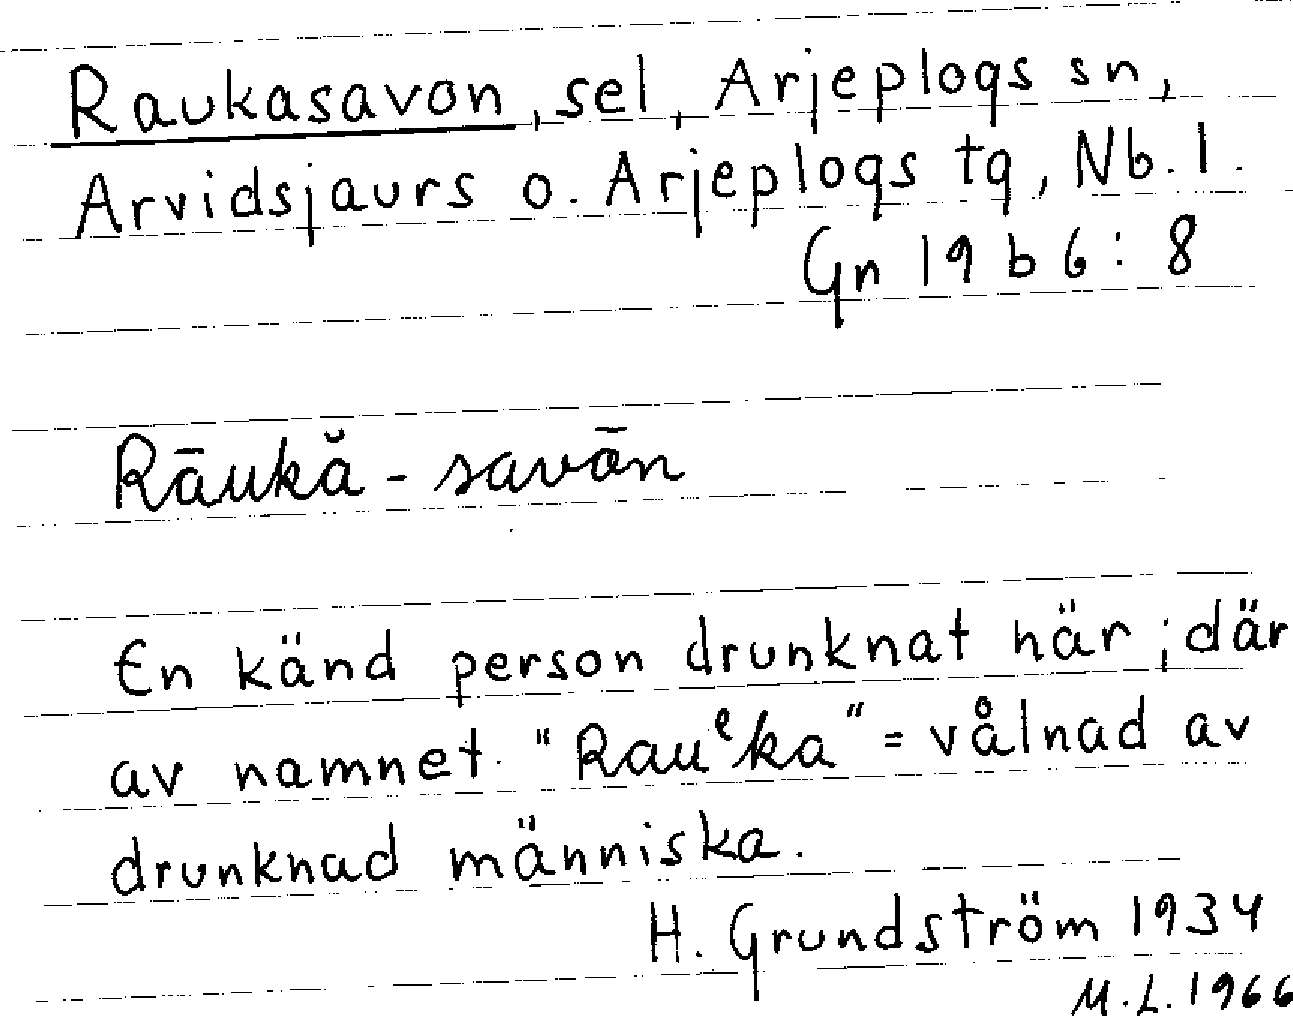 Raukasavon, sel, Arjeplogs sn,
Arvidsjaurs o. Arjeplogs tg, Nb. l.
Gn 19 b 6: 8
Rāukă - savōn
En känd person drunknat här; där
av namnet "Rauᵉka" = vålnad av
drunknad människa.
H. Grundström 1934
M.L. 1966